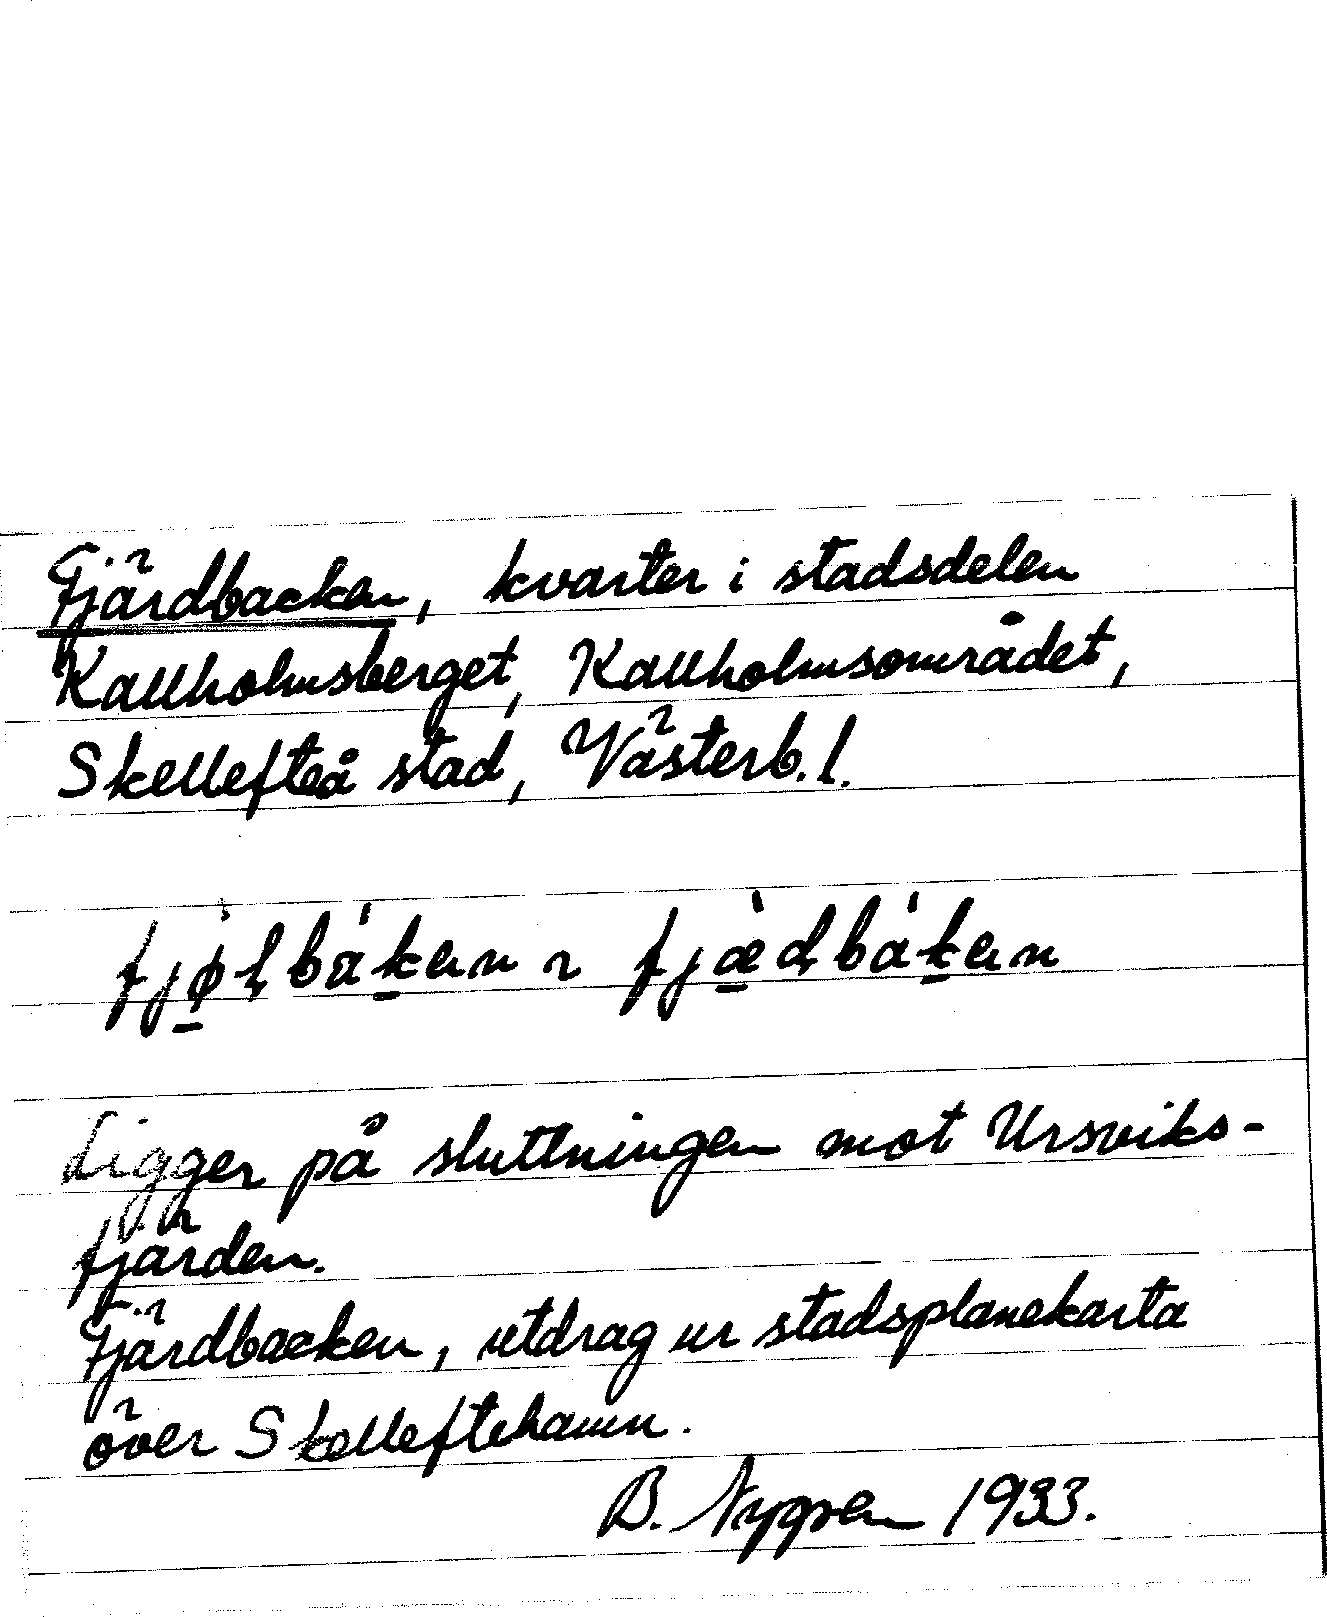 Fjärdbacken, kvarter i stadsdelen
Kallholmsberget, Kallholmsområdet,
Skellefteå stad, Västerb. l.
fjø̀ɫbák̲en ~ fjæ̀dbák̲en
Ligger på sluttningen mot Ursviks-
fjärden.
Fjärdbacken, utdrag ur stadsplanekarta
över Skelleftehamn.
B. Nygren 1933.